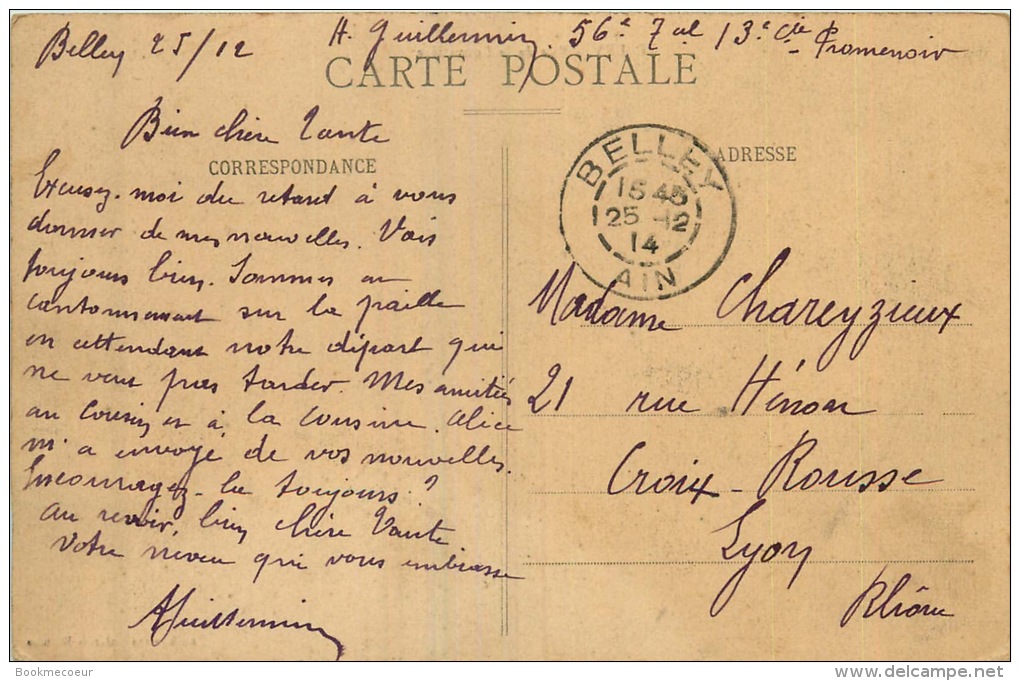 Belley 25/12 H. Guillermin 56e 7al 13e Cie Promenoir
CARTE POSTALE
Bien chère Tante
CORRESPONDANCE
ADRESSE
BELLEY
15 45
25 -12
14
AIN
Excusez-moi du retard à vous
donner de mes nouvelles. Vais
toujours bien. Sommes en
cantonnement sur la paille
en attendant notre départ qui
ne veut pas tarder. Mes amitiés
au Cousin et à la Cousine. Alice
m'a envoyé de vos nouvelles.
Encouragez-la toujours ?
au revoir, bien chère Tante
Votre neveu qui vous embrasse
AGuillermin
Madame Chareyzieux
21 rue Hénon
Croix-Rousse
Lyon
Rhône
Bookmecoeur
delcampe.net